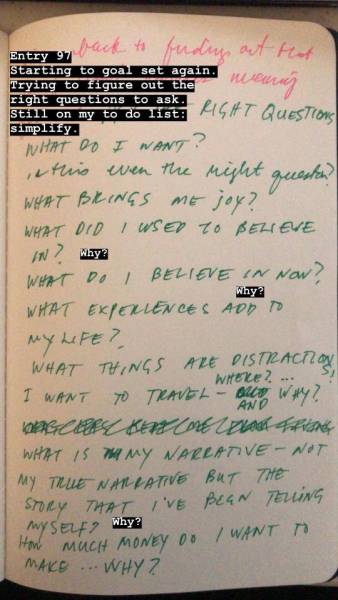 back to finding out that
Entry 97
Starting to goal set again.
Trying to figure out the
right questions to ask.
Still on my to do list:
simplify.
meaning
RIGHT QUESTIONS
WHAT DO I WANT?
is this even the right question?
WHAT BRINGS ME JOY?
WHAT DID I USED TO BELIEVE
IN?
Why?
WHAT DO I BELIEVE IN NOW?
Why?
WHAT EXPERIENCES ADD TO
MY LIFE?
WHAT THINGS ARE DISTRACTIONS?
WHERE? ...
I WANT TO TRAVEL - WHY?
AND
WHAT IS MY NARRATIVE - NOT
MY TRUE NARRATIVE BUT THE
STORY THAT I'VE BEEN TELLING
MYSELF?
Why?
HOW MUCH MONEY DO I WANT TO
MAKE ... WHY?